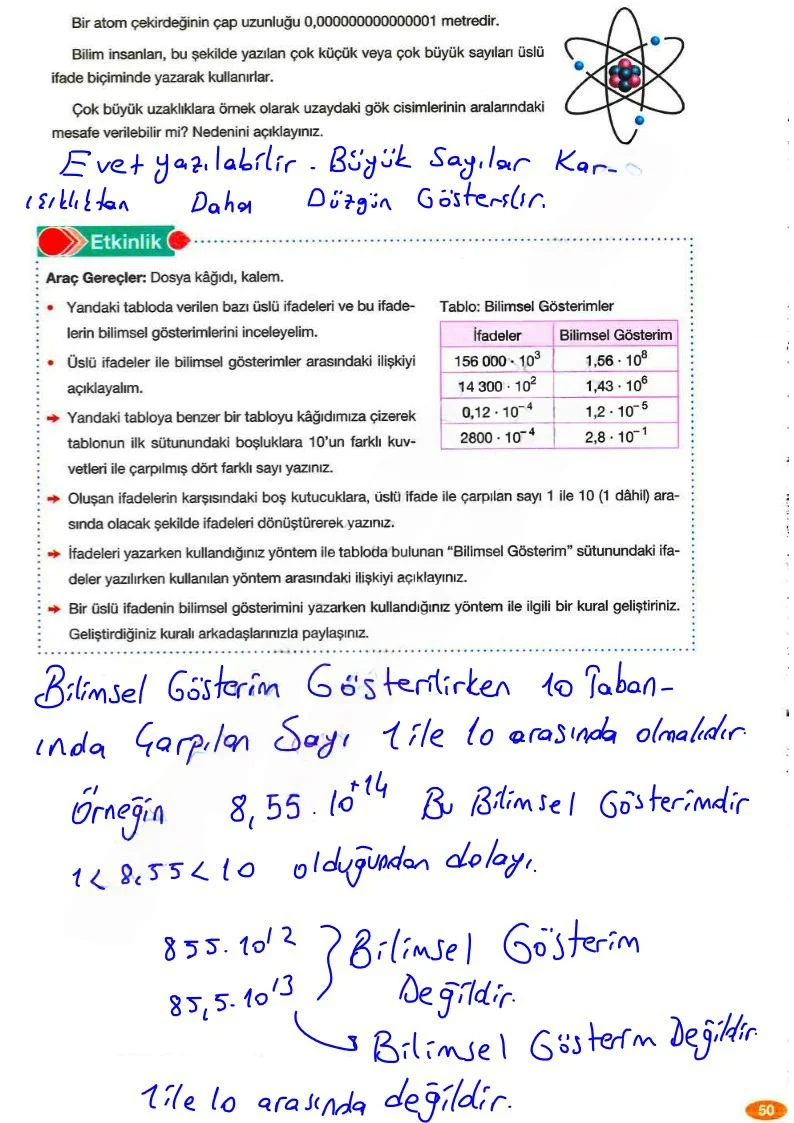 Bir atom çekirdeğinin çap uzunluğu 0,000000000000001 metredir.
Bilim insanları, bu şekilde yazılan çok küçük veya çok büyük sayıları üslü
ifade biçiminde yazarak kullanırlar.
Çok büyük uzaklıklara örnek olarak uzaydaki gök cisimlerinin aralarındaki
mesafe verilebilir mi? Nedenini açıklayınız.
Evet yazılabilir. Büyük Sayılar Kar-
ışıklıktan Daha Düzgün Gösterilir.
Etkinlik
Araç Gereçler: Dosya kâğıdı, kalem.
• Yandaki tabloda verilen bazı üslü ifadeleri ve bu ifade-
lerin bilimsel gösterimlerini inceleyelim.
• Üslü ifadeler ile bilimsel gösterimler arasındaki ilişkiyi
açıklayalım.
→ Yandaki tabloya benzer bir tabloyu kâğıdımıza çizerek
tablonun ilk sütunundaki boşluklara 10'un farklı kuv-
vetleri ile çarpılmış dört farklı sayı yazınız.
Tablo: Bilimsel Gösterimler
İfadeler Bilimsel Gösterim
156 000 · 10³ 1,56 · 10⁸
14 300 · 10² 1,43 · 10⁶
0,12 · 10⁻⁴ 1,2 · 10⁻⁵
2800 · 10⁻⁴ 2,8 · 10⁻¹
→ Oluşan ifadelerin karşısındaki boş kutucuklara, üslü ifade ile çarpılan sayı 1 ile 10 (1 dâhil) ara-
sında olacak şekilde ifadeleri dönüştürerek yazınız.
→ İfadeleri yazarken kullandığınız yöntem ile tabloda bulunan "Bilimsel Gösterim" sütunundaki ifa-
deler yazılırken kullanılan yöntem arasındaki ilişkiyi açıklayınız.
→ Bir üslü ifadenin bilimsel gösterimini yazarken kullandığınız yöntem ile ilgili bir kural geliştiriniz.
Geliştirdiğiniz kuralı arkadaşlarınızla paylaşınız.
Bilimsel Gösterim Gösterilirken 10 Taban-
ında Çarpılan Sayı 1 ile 10 arasında olmalıdır.
Örneğin 8,55 . 10⁺¹⁴ Bu Bilimsel Gösterimdir
1 < 8,55 < 10 olduğundan dolayı.
855. 10¹² } Bilimsel Gösterim
85,5. 10¹³ Değildir.
Bilimsel Gösterim Değildir.
1 ile 10 arasında değildir.
50